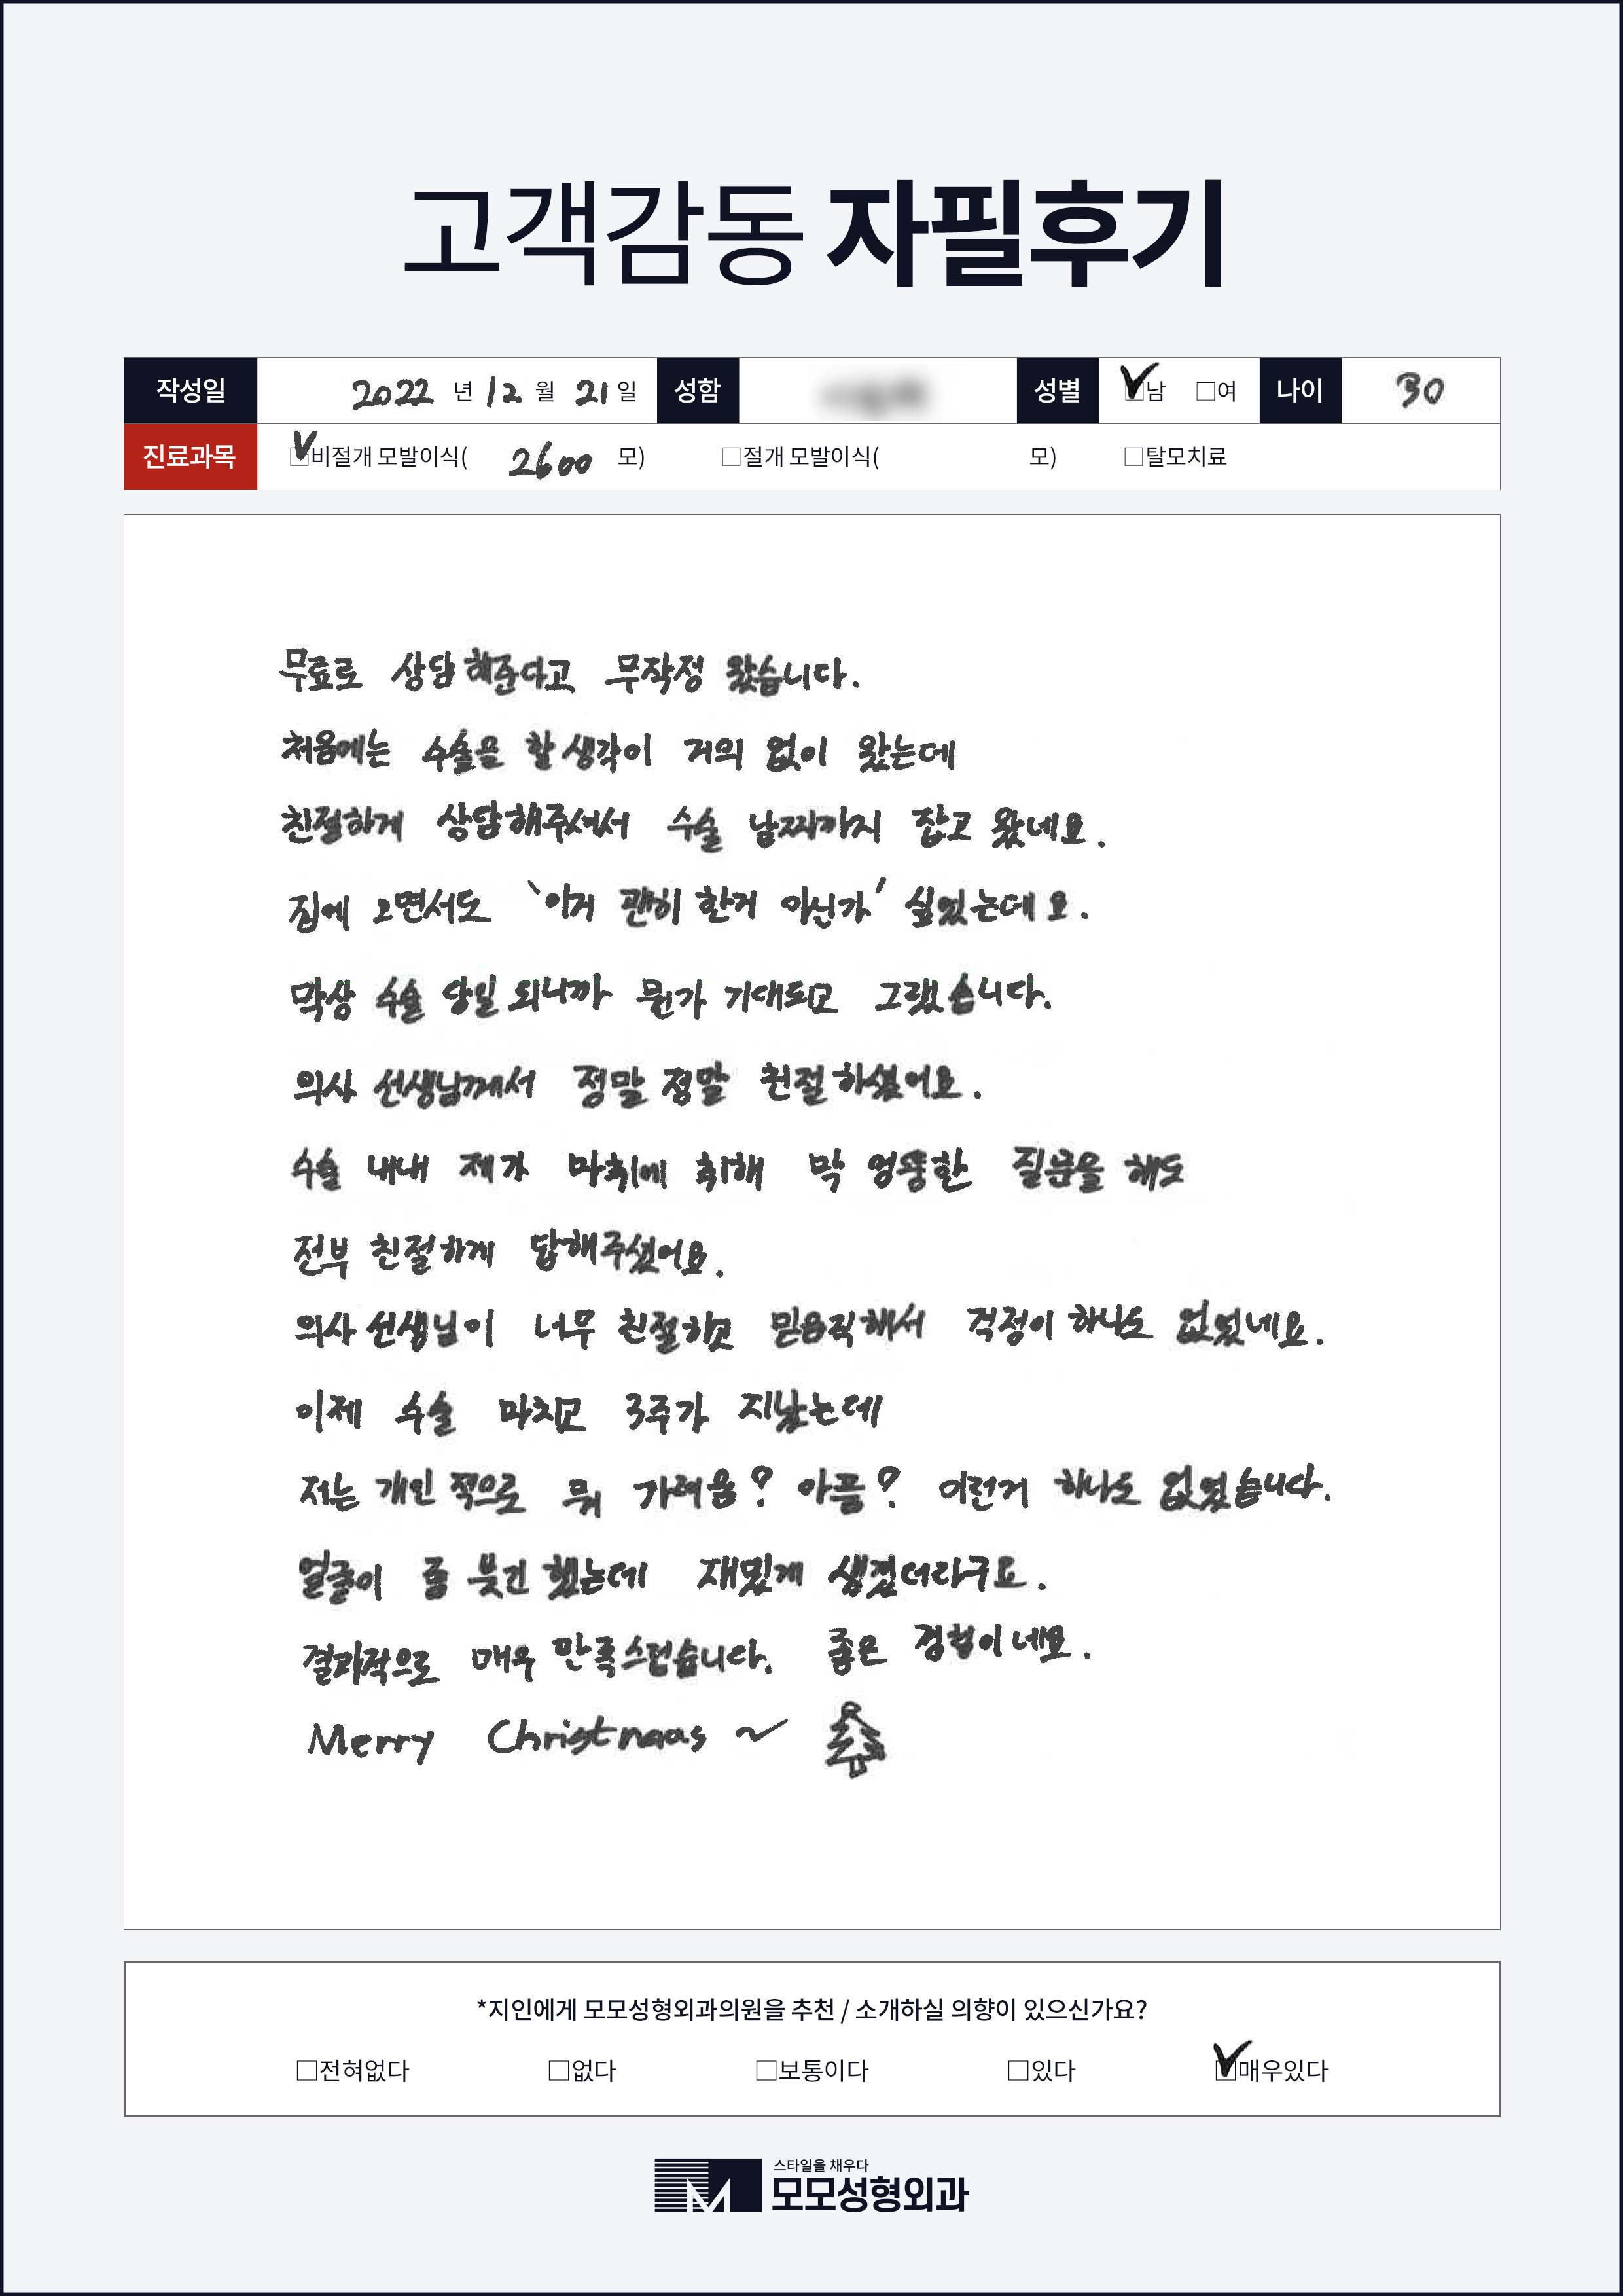 고객감동 자필후기
작성일 2022 년 12 월 21 일 성함 성별 ☑남 □여 나이 30
진료과목 ☑비절개 모발이식( 2600 모) □절개 모발이식( 모) □탈모치료
무료로 상담해준다고 무작정 왔습니다.
처음에는 수술을 할 생각이 거의 없이 왔는데
친절하게 상담해주셔서 수술 날짜까지 잡고 왔네요.
집에 오면서도 '이거 괜히 한거 아닌가' 싶었는데요.
막상 수술 당일 되니까 뭔가 기대되고 그랬습니다.
의사 선생님께서 정말 정말 친절하셨어요.
수술 내내 제가 마취에 취해 막 엉뚱한 질문을 해도
전부 친절하게 답해주셨어요.
의사 선생님이 너무 친절하고 믿음직해서 걱정이 하나도 없었네요.
이제 수술 마치고 3주가 지났는데
저는 개인적으로 뭐 가려움? 아픔? 이런거 하나도 없었습니다.
얼굴이 좀 붓긴 했는데 재밌게 생겼더라구요.
결과적으로 매우 만족스럽습니다. 좋은 경험이네요.
Merry Christmas ~
*지인에게 모모성형외과의원을 추천 / 소개하실 의향이 있으신가요?
□전혀없다 □없다 □보통이다 □있다 ☑매우있다
스타일을 채우다
모모성형외과